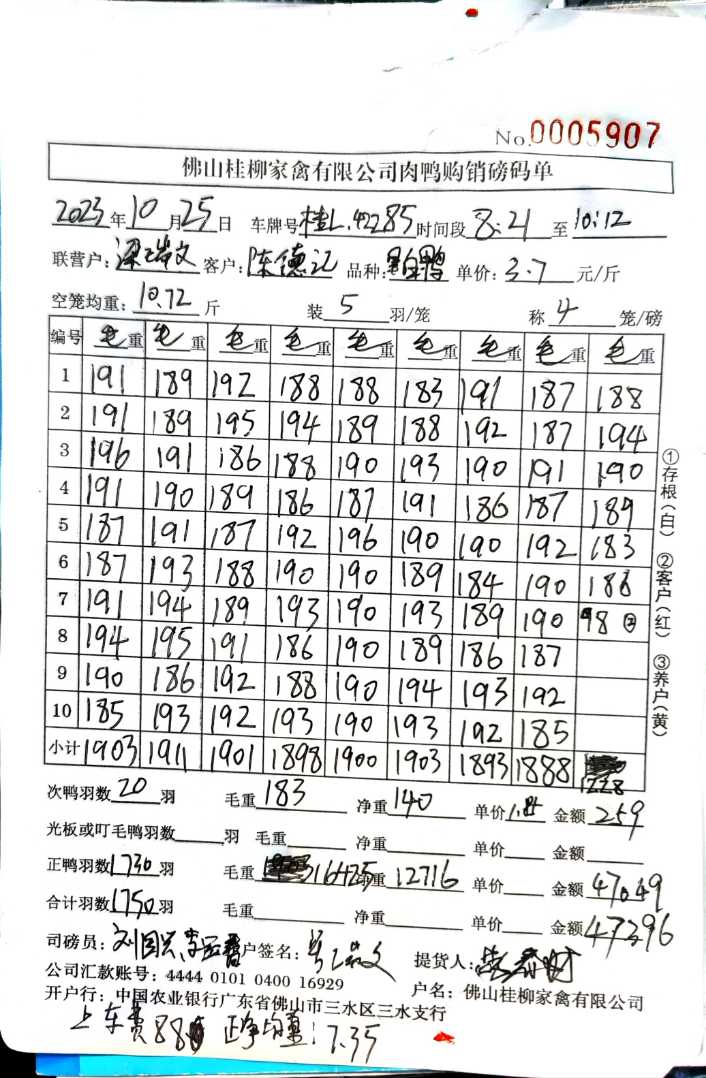 No.0005907
佛山桂柳家禽有限公司肉鸭购销磅码单
2023年10月25日 车牌号桂L.42285时间段8:21至10:12
联营户:梁瑞文 客户:陈德记 品种:白鸭 单价:3.7元/斤
空笼均重:10.72斤 装5羽/笼 称4笼/磅
编号 毛重 毛重 毛重 毛重 毛重 毛重 毛重 毛重 毛重
1 191 189 192 188 188 183 191 187 188
2 191 189 195 194 189 188 192 187 194
3 196 191 186 188 190 193 190 191 190
4 191 190 189 186 187 191 186 187 189
5 187 191 187 192 196 190 190 192 183
6 187 193 188 190 190 189 184 190 186
7 191 194 189 193 190 193 189 190 98
8 194 195 191 186 190 189 186 187
9 190 186 192 188 190 194 193 192
10 185 193 192 193 190 193 192 185
小计 1903 1911 1901 1898 1900 1903 1893 1888 1228
①存根(白) ②客户(红) ③养户(黄)
次鸭羽数20羽 毛重183 净重140 单价1.85 金额259
光板或叮毛鸭羽数 羽 毛重 净重 单价 金额
正鸭羽数1730羽 毛重16425净重12716 单价 金额47049
合计羽数1750羽 毛重 净重 单价 金额47396
司磅员:刘国兴 户签名: 提货人:
公司汇款账号:4444 0101 0400 16929 户名:佛山桂柳家禽有限公司
开户行:中国农业银行广东省佛山市三水区三水支行
上车费88 正净均重:7.35